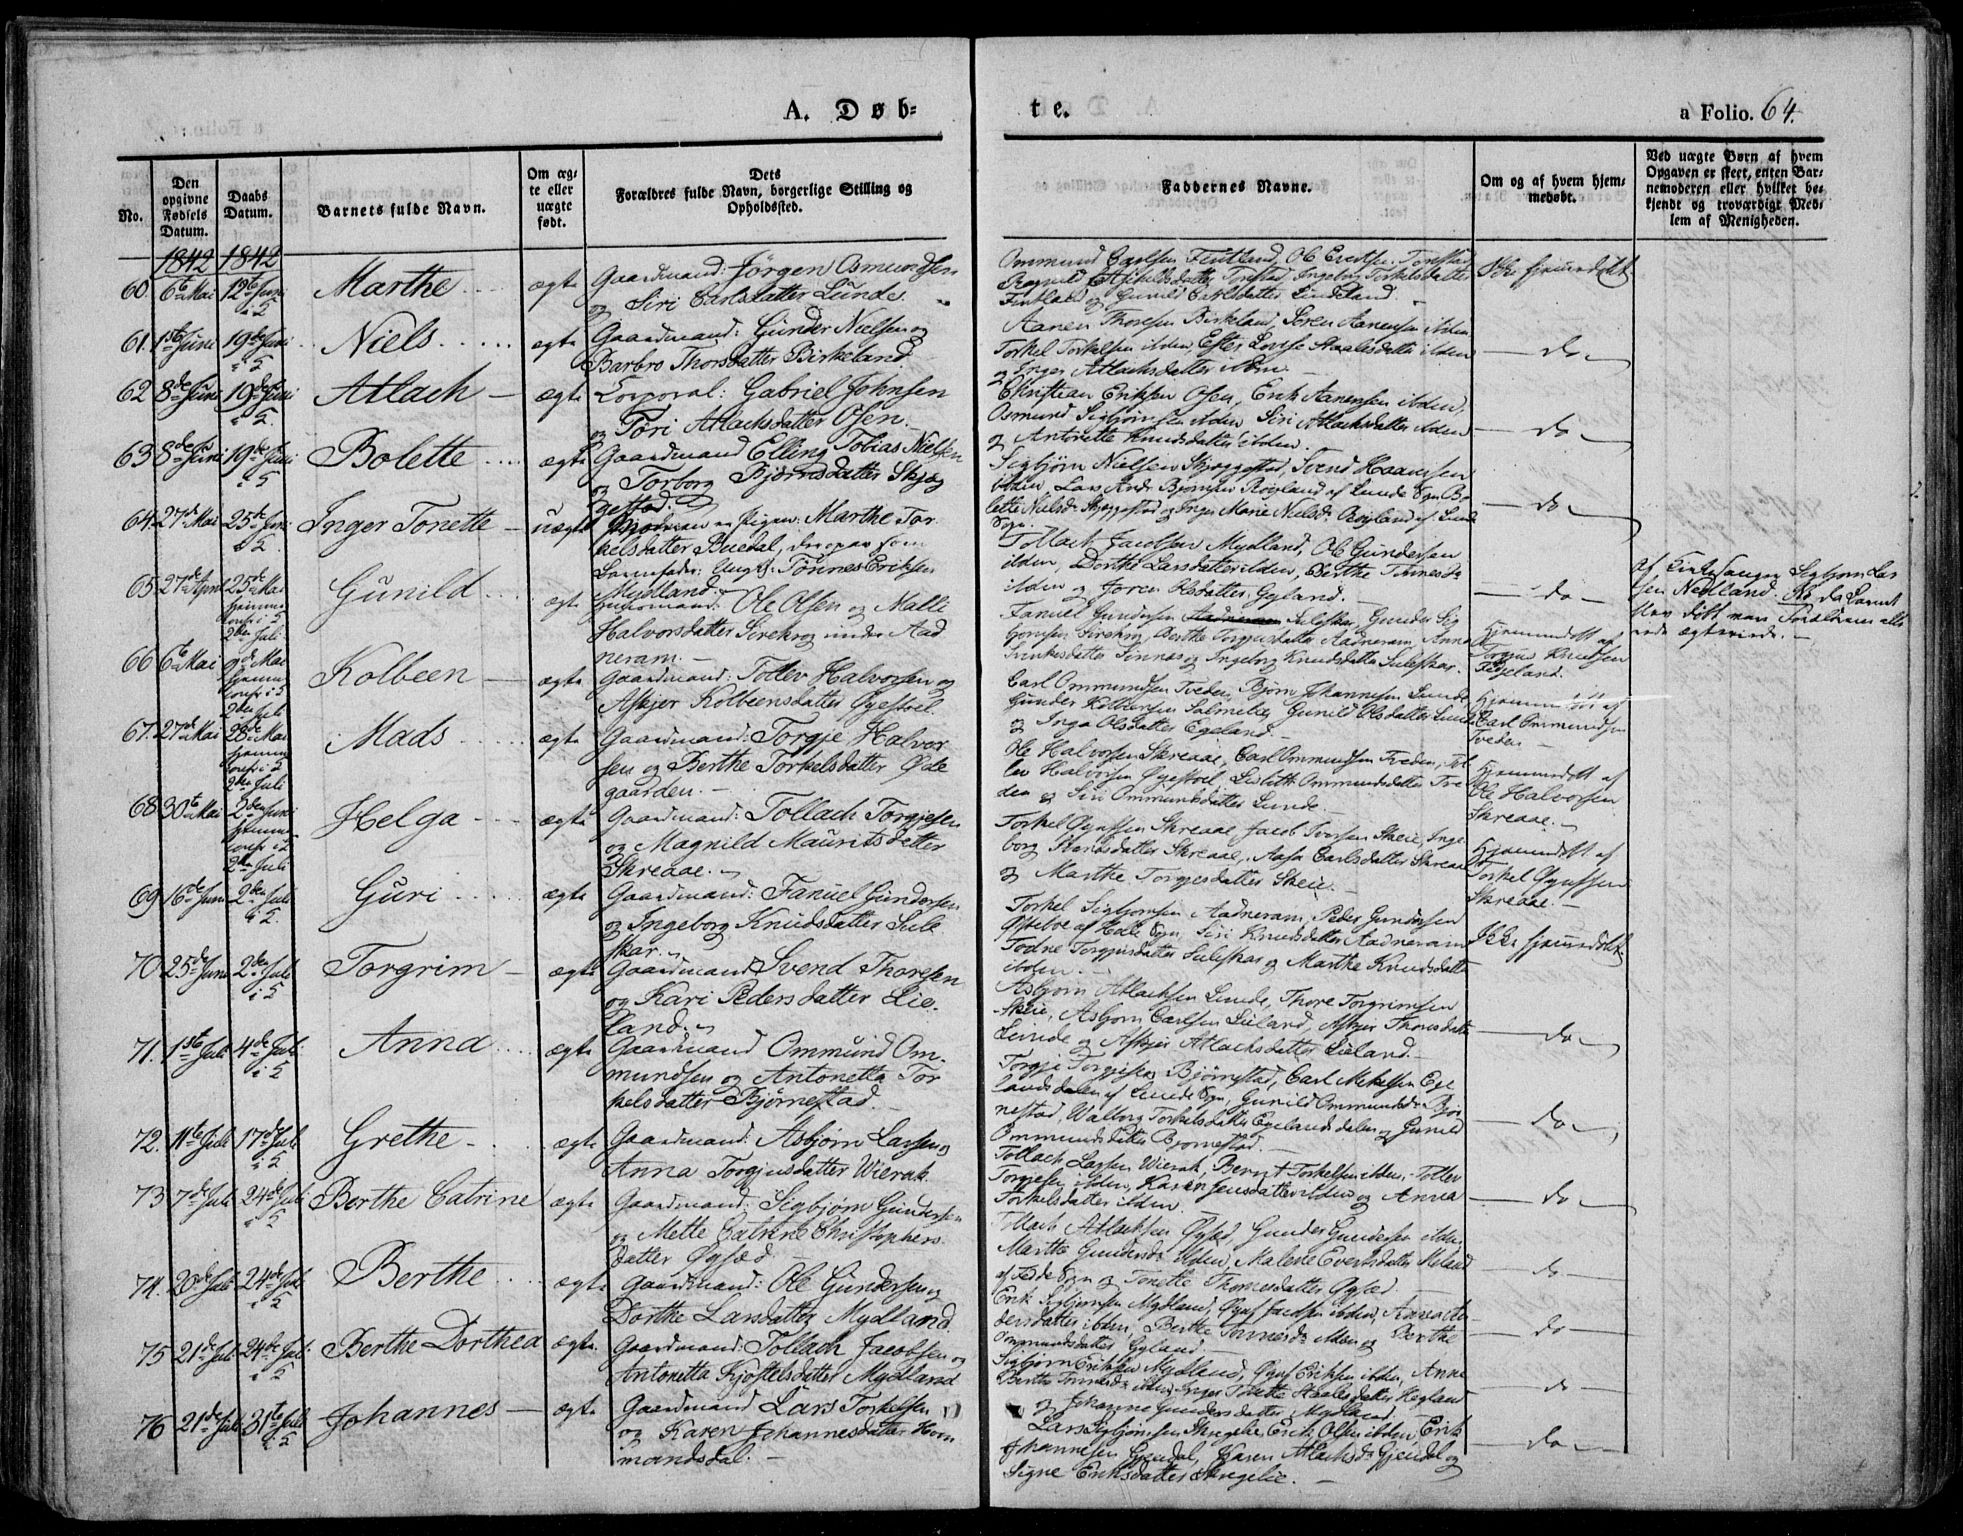 A. Døb=
te.
a Folio. 64.
No.
Den opgivne Fødsels Datum.
Daabs Datum.
Barnets fulde Navn.
Om æg-
te eller
uægte
født.
Dets
Forældres fulde Navn, borgerlige Stilling og
Opholdssted.
Faddernes Navne.
Om og af hvem hjem-
medøbt.
Ved uægte Børn af hvem
Opgaven er skeet, enten Bar-
nemoderen eller hvilket be-
kjendt og troværdigt Med-
lem af Menigheden.
1842 1842
60 6te Mai 12te Juni i S Marthe ægte Gaardmand: Jörgen Osmundsen
og Siri Carlsdatter Lunde.
Ommund Carlsen Fintland, Ole Evertsen Tonstad
Ragnild Aschildsdatter Tonstad, Ingeborg Torkelsdatter
Fintland og Gunild Carlsdatter Lindeland.
Ikke hjemmedøbt
61. 1ste Juni 19de Juni i S Niels ægte Gaardmand: Gunder Nielsen og
Barbro Thorsdatter Birkeland
Aanen Thoresen Birkeland, Soren Aanensen ibden
Torkel Torkelsen ibden, Ester Lovise Staalesdatter ibden
og Inger Atlachsdatter
do
62 8de Juni 19de Juni i S. Atlach ægte Corporal: Gabriel Johnsen
og Töri Atlachsdatter Osen.
Christian Eriksen Osen, Erik Aanensen ibden,
Osmund Sigbjørnsen ibden Siri Atlachsdatter ibden
og Antonette Knudsdatter ibden.
do
63 8de Juni 19de Juni i S Bolette ægte Gaardmand Elling Tobias Nielsen
og Torborg Bjørnsdatter Skjæg
gestad.
Sigbjørn Nielsen Skjeggestad, Svend Haansen
ibden Lars Andr. Bjørnsen Røyland af Lunde Sgn Bo
lette Nielsdr Skjeggestad og Inger Marie Nielsdr Røyland af Lunde
Sogn.
do
64. 27de Mai 25de Juni i S. Inger Tonette uægte Moderen er Pigen: Marthe Tor
kelsdatter Buedal, der opgav som
Barnefader: Ungk: Tønnes Eriksen
Mydland.
Tollach Jacobsen Mydland, Ole Gundersen
ibden, Dorthe Larsdatter ibden, Berthe Tønnesdr
ibden og Joren Olsdatter Gyland.
do
af Kirkesanger Sigbjørn Lar
sen Nedland. da Barnet
blev døbt var Forældrene alle
rede ægteviede.
65 27de April 25de Mai hjemme confr i S 2den Juli Gunild ægte Huusmand: Ole Olsen og Malli
Halvorsdatter Sirekrog under Aad
neram.
Fanuel Gundersen Aadneram Suleskar, Gunder Sig
bjørnsen Sirekrog Berthe Torgjusdatter Aadneram Anna
Svinkesdatter Sinnes og Ingeborg Knudsdatter Suleskar.
Hjemmedøbt af
Torgius Knudsen
Fidjeland.
66 6te Mai 9de Mai hjemme confr i S 2den Juli Kolbeen ægte Gaardmand: Tollev Halvorsen og
Askjer Kolbeensdatter Øyestvel.
Carl Ommundsen Tveden, Bjørn Johannesen Lunde
Gunder Salmeli, Gunild Olsdatter Lunde
og Inga Olsdatter Egeland.
Hjemmedøbt af
Carl Ommundsen
Tveden
67. 27de Mai 28de Mai hjemme confr i S 2den Juli Mads ægte Gaardmand: Torgje Halvor
sen og Berthe Torkelsdatter Øde
gaarden.
Ole Halvorsen Skreaae, Carl Ommundsen Tveden, Tol
lev Halvorsen Øyestvel, Lisbeth Ommundsdatter Tve
den og Siri Ommundsdatter Lunde.
Hjemmedøbt af
Ole Halvorsen
Skreaae.
68 30te Mai 2den Juni hjemme confr i S 2den Juli Helga ægte Gaardmand: Tollach Torgjesen
og Magnild Mauritsdatter
Skreaae.
Torkel Øynssen Skreaae, Jacob Iversen Skeie, Inge
borg Skreaae, Aasa Carlsdatter Skreaae
og Marthe Torgjesdatter Skeie.
Hjemmedøbt af
Torkel Øynssen
Skreaae.
69 16de Juni 2den Juli i S. Guri ægte Gaardmand: Fanuel Gundersen
og Ingeborg Knudsdatter Sule
skar.
Torkel Sigbjørnsen Aadneram, Peder Gundersen
Østeboe af Hole Sgn, Siri Knudsdatter Aadneram
Todne Torgjusdatter Suleskar og Marthe Knudsdatter
ibden.
Ikke hjemmedøbt
70 25de Juni 2den Juli i S Torgrim ægte Gaardmand Svend Thoresen
og Kari Pedersdatter Lie-
land.
Asbjørn Atlachsen Lunde, Thore Torgrimsen
Skeie, Asbjørn Carlsen Lieland, Askjer Thoresdatter
Lunde og Askjer Atlachsdatter Lieland.
do
71. 1ste Juli 4de Juli i S Anna ægte Gaardmand Ommund Om-
mundsen og Antonetta Tor
kelsdatter Bjørnestad.
Torgje Torgjesen Bjørnestad, Carl Mikelsen Ege
landsdalen af Lunde Sgn, Gunild Ommundsdr Bjør
nestad, Walborg Torkelsdatter Egelandsdalen og Gunild
Ommundsdatter Bjørnestad.
do
72. 11te Juli 17de Juli i S. Grethe ægte Gaardmand: Asbjørn Larsen og
Anna Torgjusdatter Wierak.
Tollach Larsen Wierak, Bernt Torkelsen ibden, Tollev
Torgjesen ibden, Karen Jensdatter ibden og Anna
Torkelsdatter ibden.
do
73 7de Juli 24de Juli i S Berthe Catrine ægte Gaardmand: Sigbjørn Gundersen
og Mette Catrine Christophers
datter Øysæd
Tollach Atlachsen Øysæd, Gunder Gundersen ibden
Marthe Gundersdr ibden, Malene Evertsdatter Meland
af Fede Sgn og Tonette Thomesdatter Øysæd
do
74. 20de Juli 24de Juli i S Berthe ægte Gaardmand: Ole Gundersen og
Dorthe Larsdatter Mydland.
Erik Sigbjørnsen Mydland, Øyns Jacobsen ibden, Anna
dersdatter ibden, Berthe Tønnesdr Moen og Berthe
Ommundsdatter Gyland.
do
75 21de Juli 24de Juli i S Berthe Dorthea ægte. Gaardmand: Tollach Jacobsen og
Antonetta Kjøstelsdatter Mydland
Sigbjørn Eriksen Mydland, Øyns Eriksen ibden, Anne
Berthe Tønnesdr ibden, Inger Tonette Staalesdatter Hegland
og Johanne Gundersdatter Mydland.
do
76 21de Juli 31te Juli i S Johannes ægte Gaardmand Lars Torkelsen
og Karen Johannesdatter Horn
mandsdal.
Lars Sigbjørnsen Skregelie, Erik Olsen ibden Erik
Johannesen Gjendal, Karen Atlachsdr Gjendal og
Signe Eriksdatter Skregelie.
do